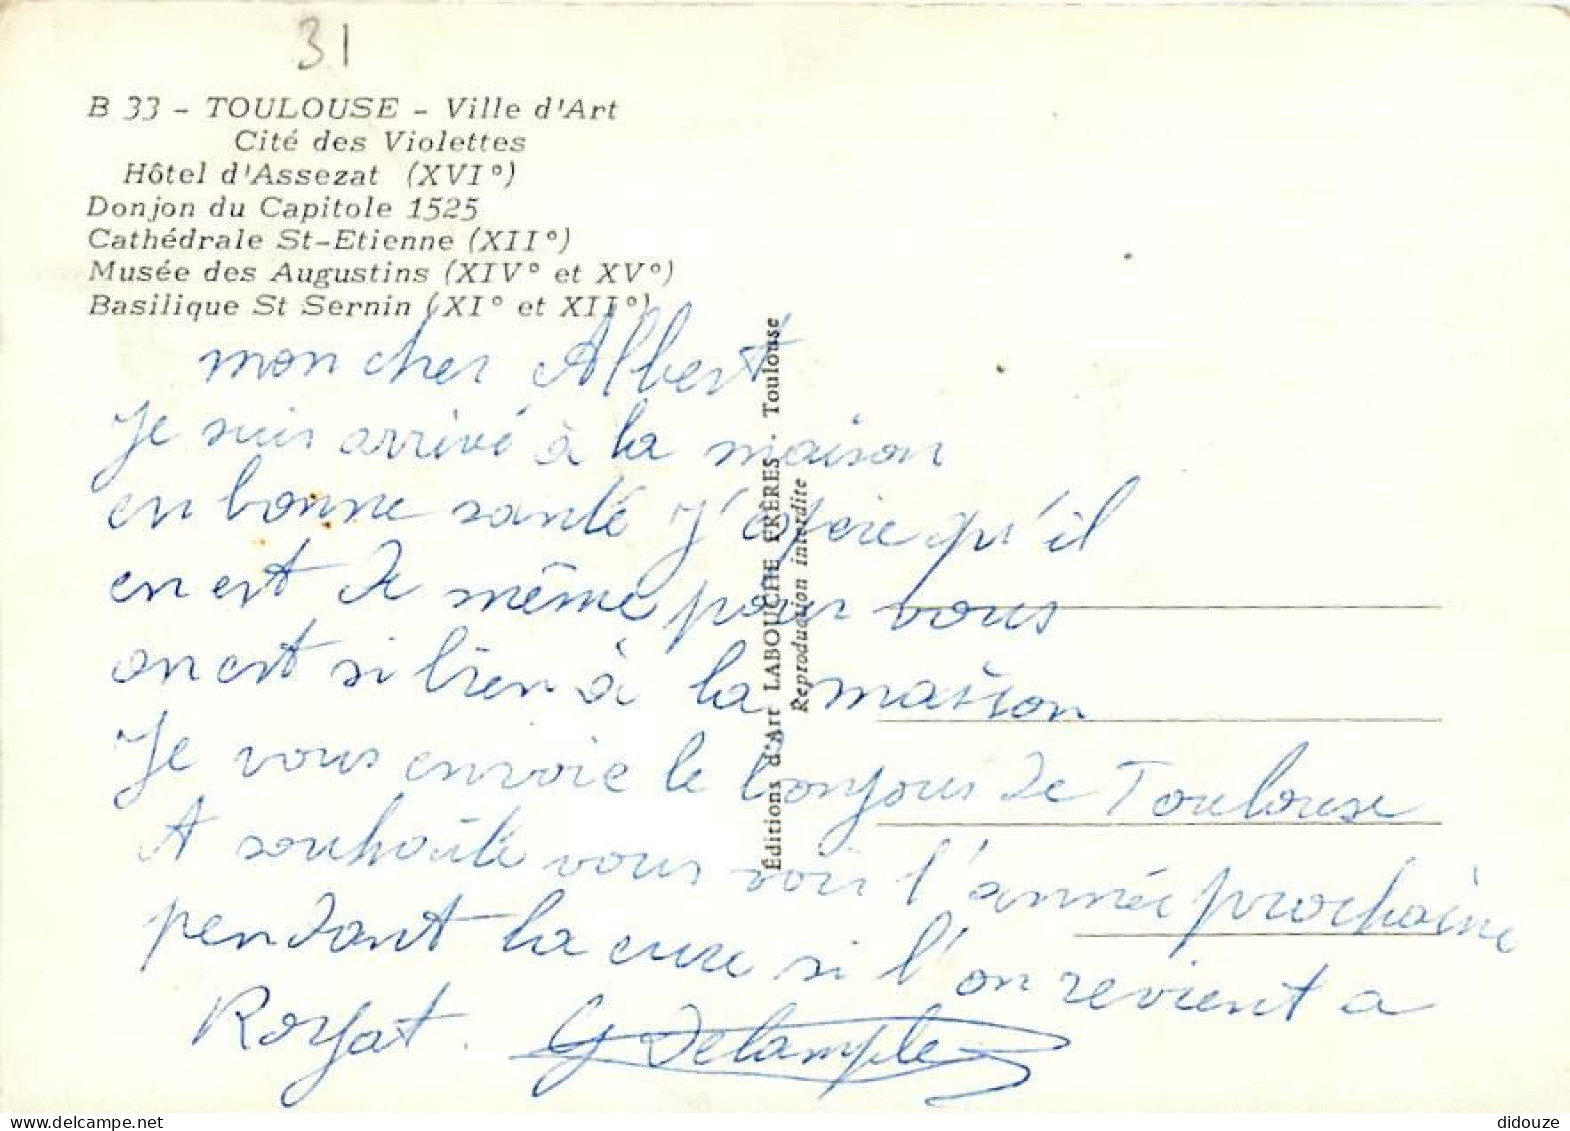 31
B 33 - TOULOUSE - Ville d'Art
Cité des Violettes
Hôtel d'Assezat (XVI°)
Donjon du Capitole 1525
Cathédrale St-Etienne (XII°)
Musée des Augustins (XIV° et XV°)
Basilique St Sernin (XI° et XII°)
mon cher Albert
Je suis arrivé à la maison
en bonne santé J'espère qu'il
en est de même pour vous
on est si bien à la maison
Je vous envoie le bonjour de Toulouse
A souhaite vous voir l'année prochaine
pendant la cure si l'on revient a
Royat. G Delample
Éditions d'Art LABOUCHE FRÈRES - Toulouse
Reproduction interdite
delcampe.net
didouze